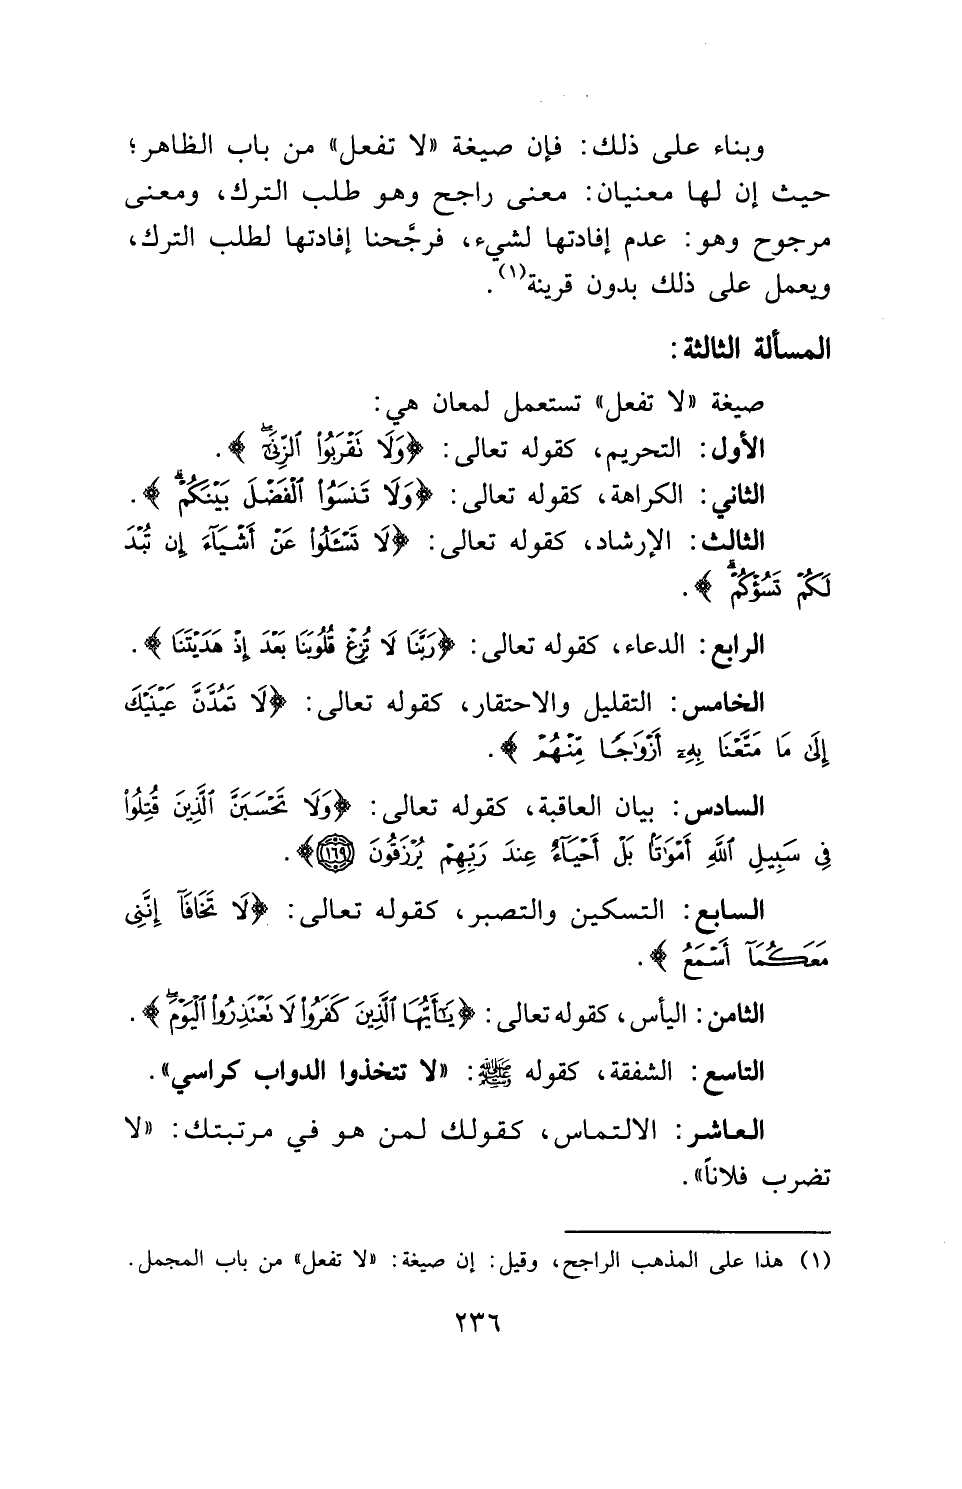 وبناء على ذلك: فإن صيغة «لا تفعل» من باب الظاهر؛
حيث إن لها معنيان: معنى راجح وهو طلب الترك، ومعنى
مرجوح وهو: عدم إفادتها لشيء، فرجَّحنا إفادتها لطلب الترك،
ويعمل على ذلك بدون قرينة(١).
المسألة الثالثة:
صيغة «لا تفعل» تستعمل لمعان هي:
الأول: التحريم، كقوله تعالى: ﴿وَلَا نَقْرَبُوا۟ ٱلزِّنَىٰٓ ۖ﴾.
الثاني: الكراهة، كقوله تعالى: ﴿وَلَا تَنسَوُا۟ ٱلْفَضْلَ بَيْنَكُمْ ۚ﴾.
الثالث: الإرشاد، كقوله تعالى: ﴿لَا تَسْـَٔلُوا۟ عَنْ أَشْيَآءَ إِن تُبْدَ
لَكُمْ تَسُؤْكُمْ ۚ﴾.
الرابع: الدعاء، كقوله تعالى: ﴿رَبَّنَا لَا تُزِغْ قُلُوبَنَا بَعْدَ إِذْ هَدَيْتَنَا﴾.
الخامس: التقليل والاحتقار، كقوله تعالى: ﴿لَا تَمُدَّنَّ عَيْنَيْكَ
إِلَىٰ مَا مَتَّعْنَا بِهِۦٓ أَزْوَٰجًا مِّنْهُمْ﴾.
السادس: بيان العاقبة، كقوله تعالى: ﴿وَلَا تَحْسَبَنَّ ٱلَّذِينَ قُتِلُوا۟
فِى سَبِيلِ ٱللَّهِ أَمْوَٰتًۢا بَلْ أَحْيَآءٌ عِندَ رَبِّهِمْ يُرْزَقُونَ ١٦٩﴾.
السابع: التسكين والتصبر، كقوله تعالى: ﴿لَا تَخَافَآ إِنَّنِى
مَعَكُمَآ أَسْمَعُ﴾.
الثامن: اليأس، كقوله تعالى: ﴿يَـٰٓأَيُّهَا ٱلَّذِينَ كَفَرُوا۟ لَا تَعْتَذِرُوا۟ ٱلْيَوْمَ ۖ﴾.
التاسع: الشفقة، كقوله ﷺ: «لا تتخذوا الدواب كراسي».
العاشر: الالتماس، كقولك لمن هو في مرتبتك: «لا
تضرب فلاناً».
(١) هذا على المذهب الراجح، وقيل: إن صيغة: «لا تفعل» من باب المجمل.
٢٣٦